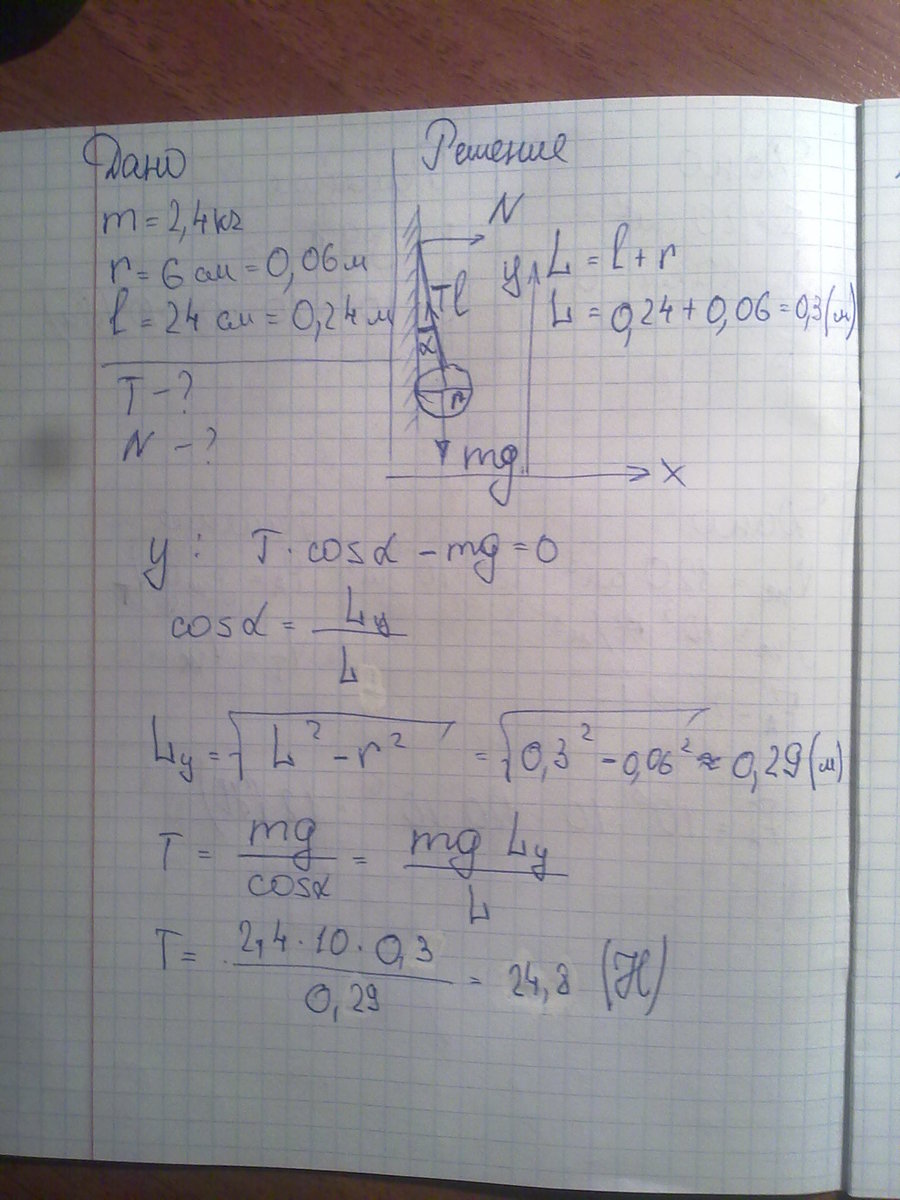 Дано
m = 2,4 кг
r = 6 см = 0,06 м
l = 24 см = 0,24 м
T - ?
N - ?
Решение
N
T l
α
r
mg
y
x
L = l + r
L = 0,24 + 0,06 = 0,3 (м)
y : T · cosα - mg = 0
cosα = Ly / L
Ly = √(L² - r²) = √(0,3² - 0,06²) ≈ 0,29 (м)
T = mg / cosα = mg Ly / L
T = 2,4 · 10 · 0,3 / 0,29 = 24,8 (Н)